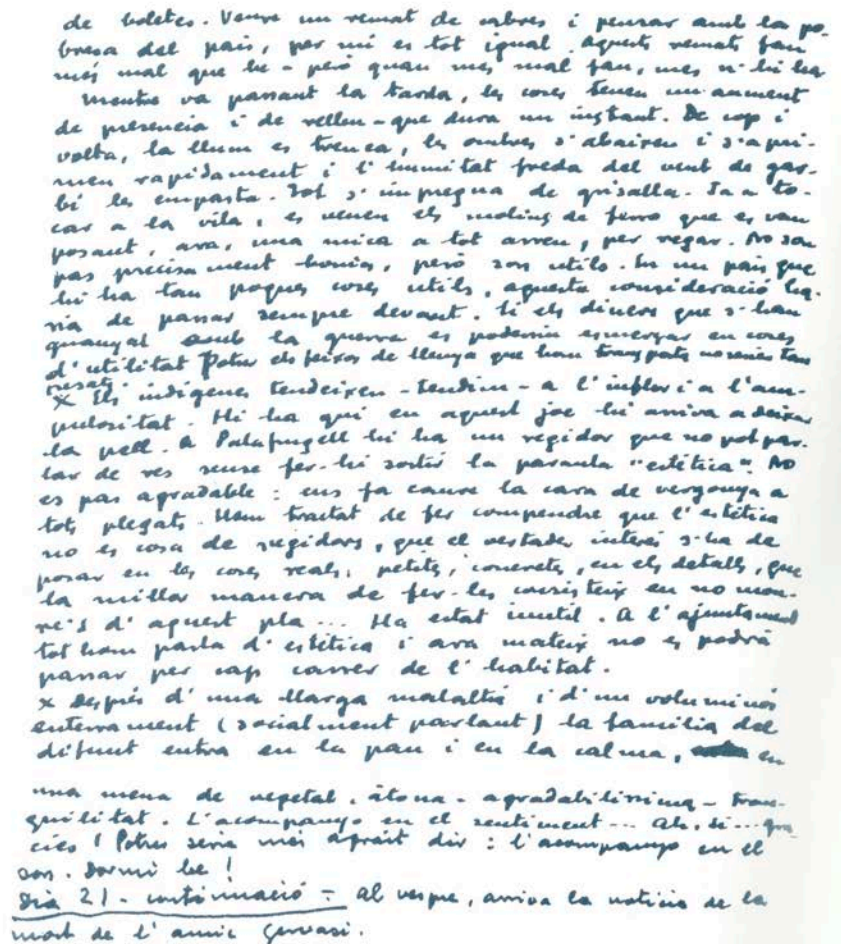 de boletes. Veure un remat de cabres i pensar amb la po-
bresa del pais, per mi es tot igual. Aquets remats fan
més mal que be – però quan mes mal fan, mes n'hi ha
Mentre va passant la tarda, les coses tenen un aument
de presencia i de relleu – que dura un instant. De cop i
volta, la llum es trenca, les ombres s'abaixen i s'apri-
men rapidament i l'humitat freda del vent de gar-
bí les empasta. Tot s'impregna de grisalla. Ja a to-
car a la vila, es veuen els molins de ferro que es van
posant, ara, una mica a tot arreu, per regar. No son
pas precisament bonics, però son utils. En un pais que
hi ha tan poques coses utils, aquesta consideració hau-
ria de passar sempre devant. Si els diners que s'han
guanyat amb la guerra es poderin esmerçar en coses
d'utilitat Potser els feixos de llenya que han traspats no serien tan
pesats
x Els indigenes tendeixen – tendim – a l'inflor i a l'am-
pulositat. Hi ha qui en aquest joc hi arriva a deixar
la pell. A Palafrugell hi ha un regidor que no pot par-
lar de res sense fer-hi sortir la paraula "estètica". No
es pas agradable : ens fa caure la cara de vergonya a
tots plegats. Hem tractat de fer compendre que l'estètica
no es cosa de regidors, que el vertader interès s'ha de
posar en les coses reals, petites, concretes, en els detalls, que
la millor manera de fer-les consisteix en no mou-
re's d'aquest pla ... Ha estat inutil. A l'ajuntament
tothom parla d'estètica i ara mateix no es podrà
passar per cap carrer de l'habitat.
x Després d'una llarga malaltia i d'un voluminós
enterrament (socialment parlant) la familia del
difunt entra en la pau i en la calma, en
una mena de vegetal, àtona – agradabilissima – tran-
quilitat. L'acompanyo en el sentiment ... Ah, si ... gra-
cies ! Potser seria més apropiat dir : l'acompanyo en el
son. Dormi be !
Dia 21 – continuació – Al vespre, arriva la noticia de la
mort de l'amic Gervasi.